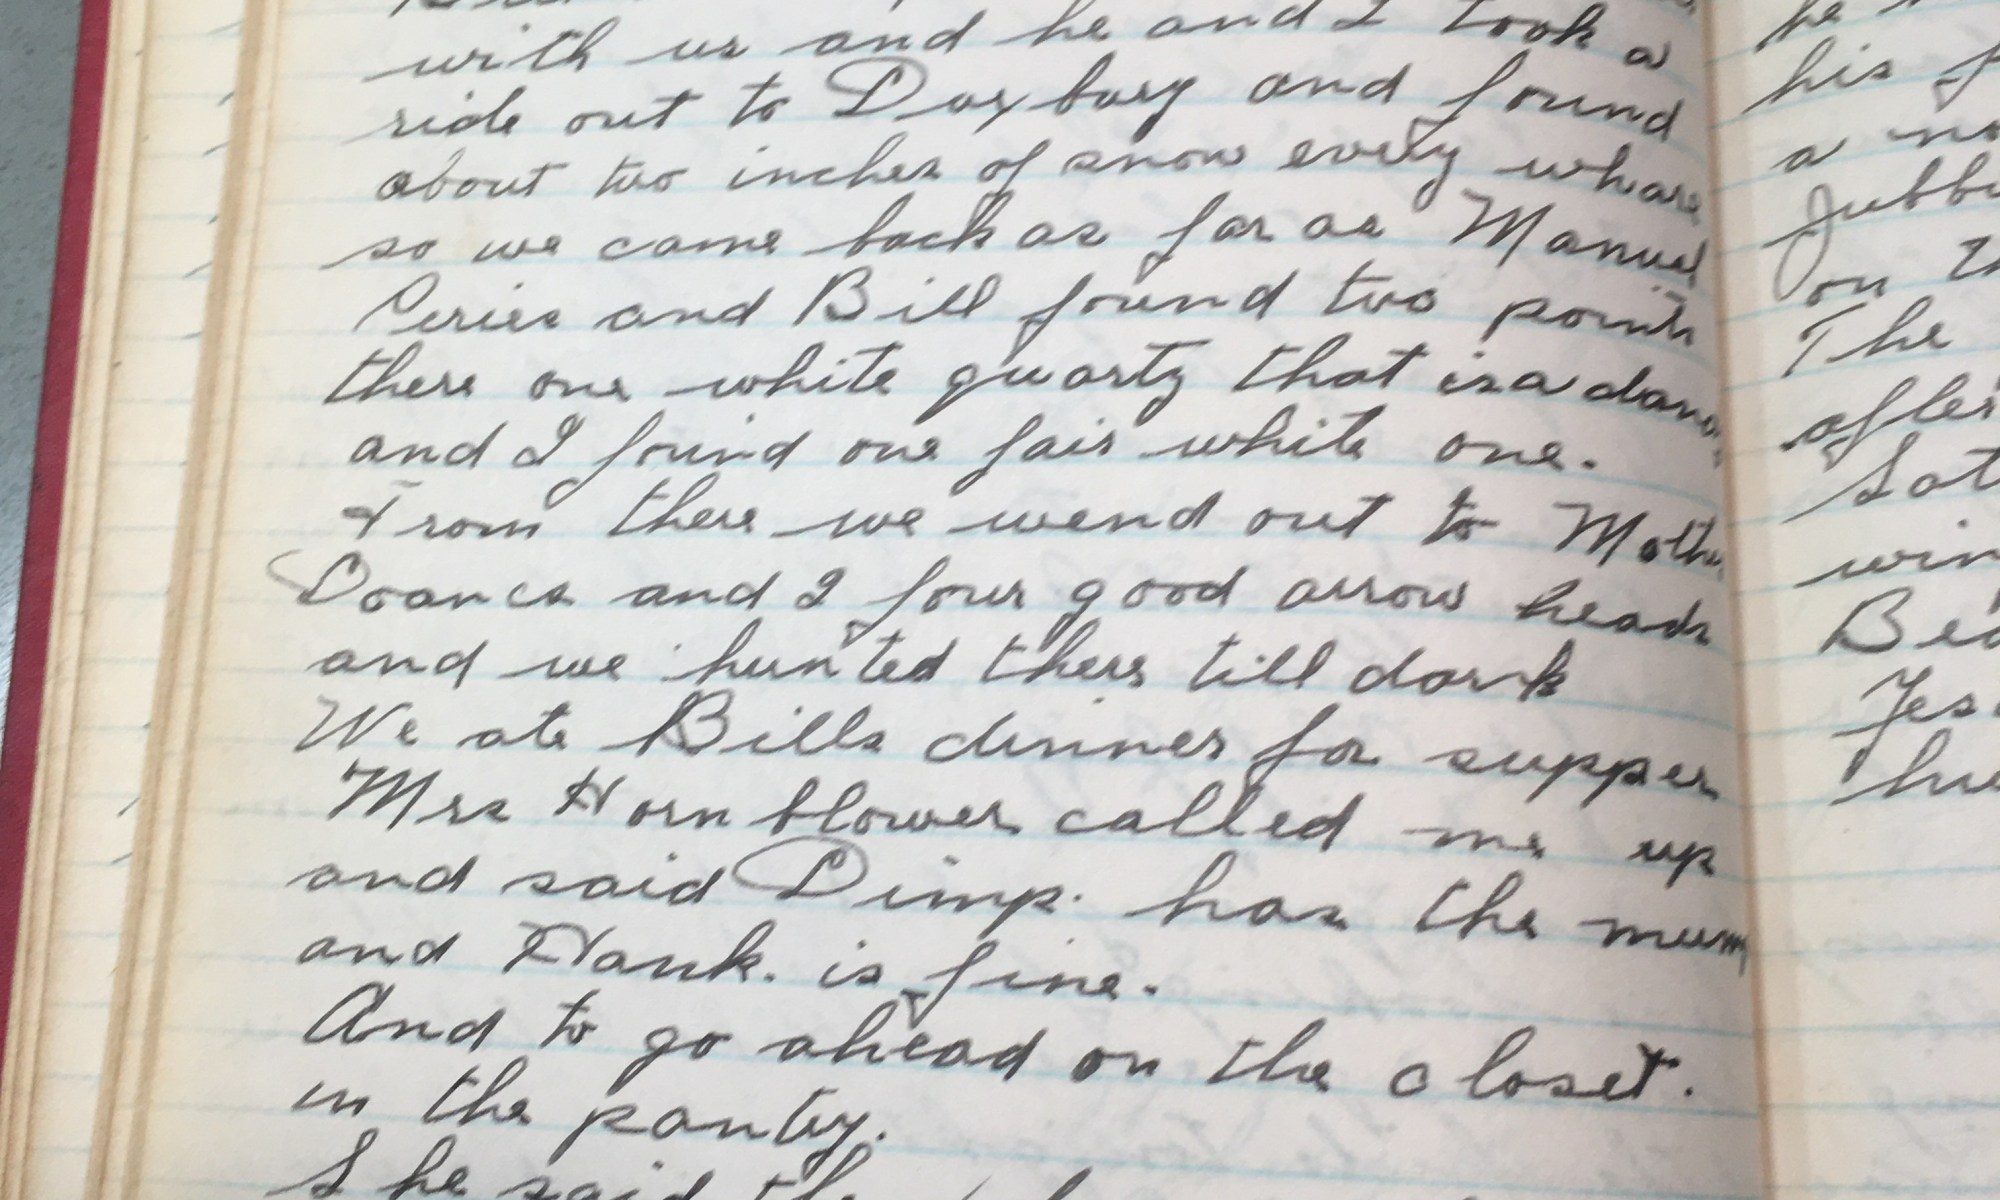 with us and he and I took a
ride out to Duxbury and found
about two inches of snow every whare
so we came back as far as Manuel
and Bill found two points
there one white quartz that is a
and I found one fair white one.
From there we wend out to
Doanes and I four good arrow heads
and we hunted there till dark
We ate Bills dinner for supper
Mrs Hornblower called me up
and said Dimp. has the
and Hank. is fine.
And to go ahead on the closet.
in the pantry.
She said
he
his
a
on
The